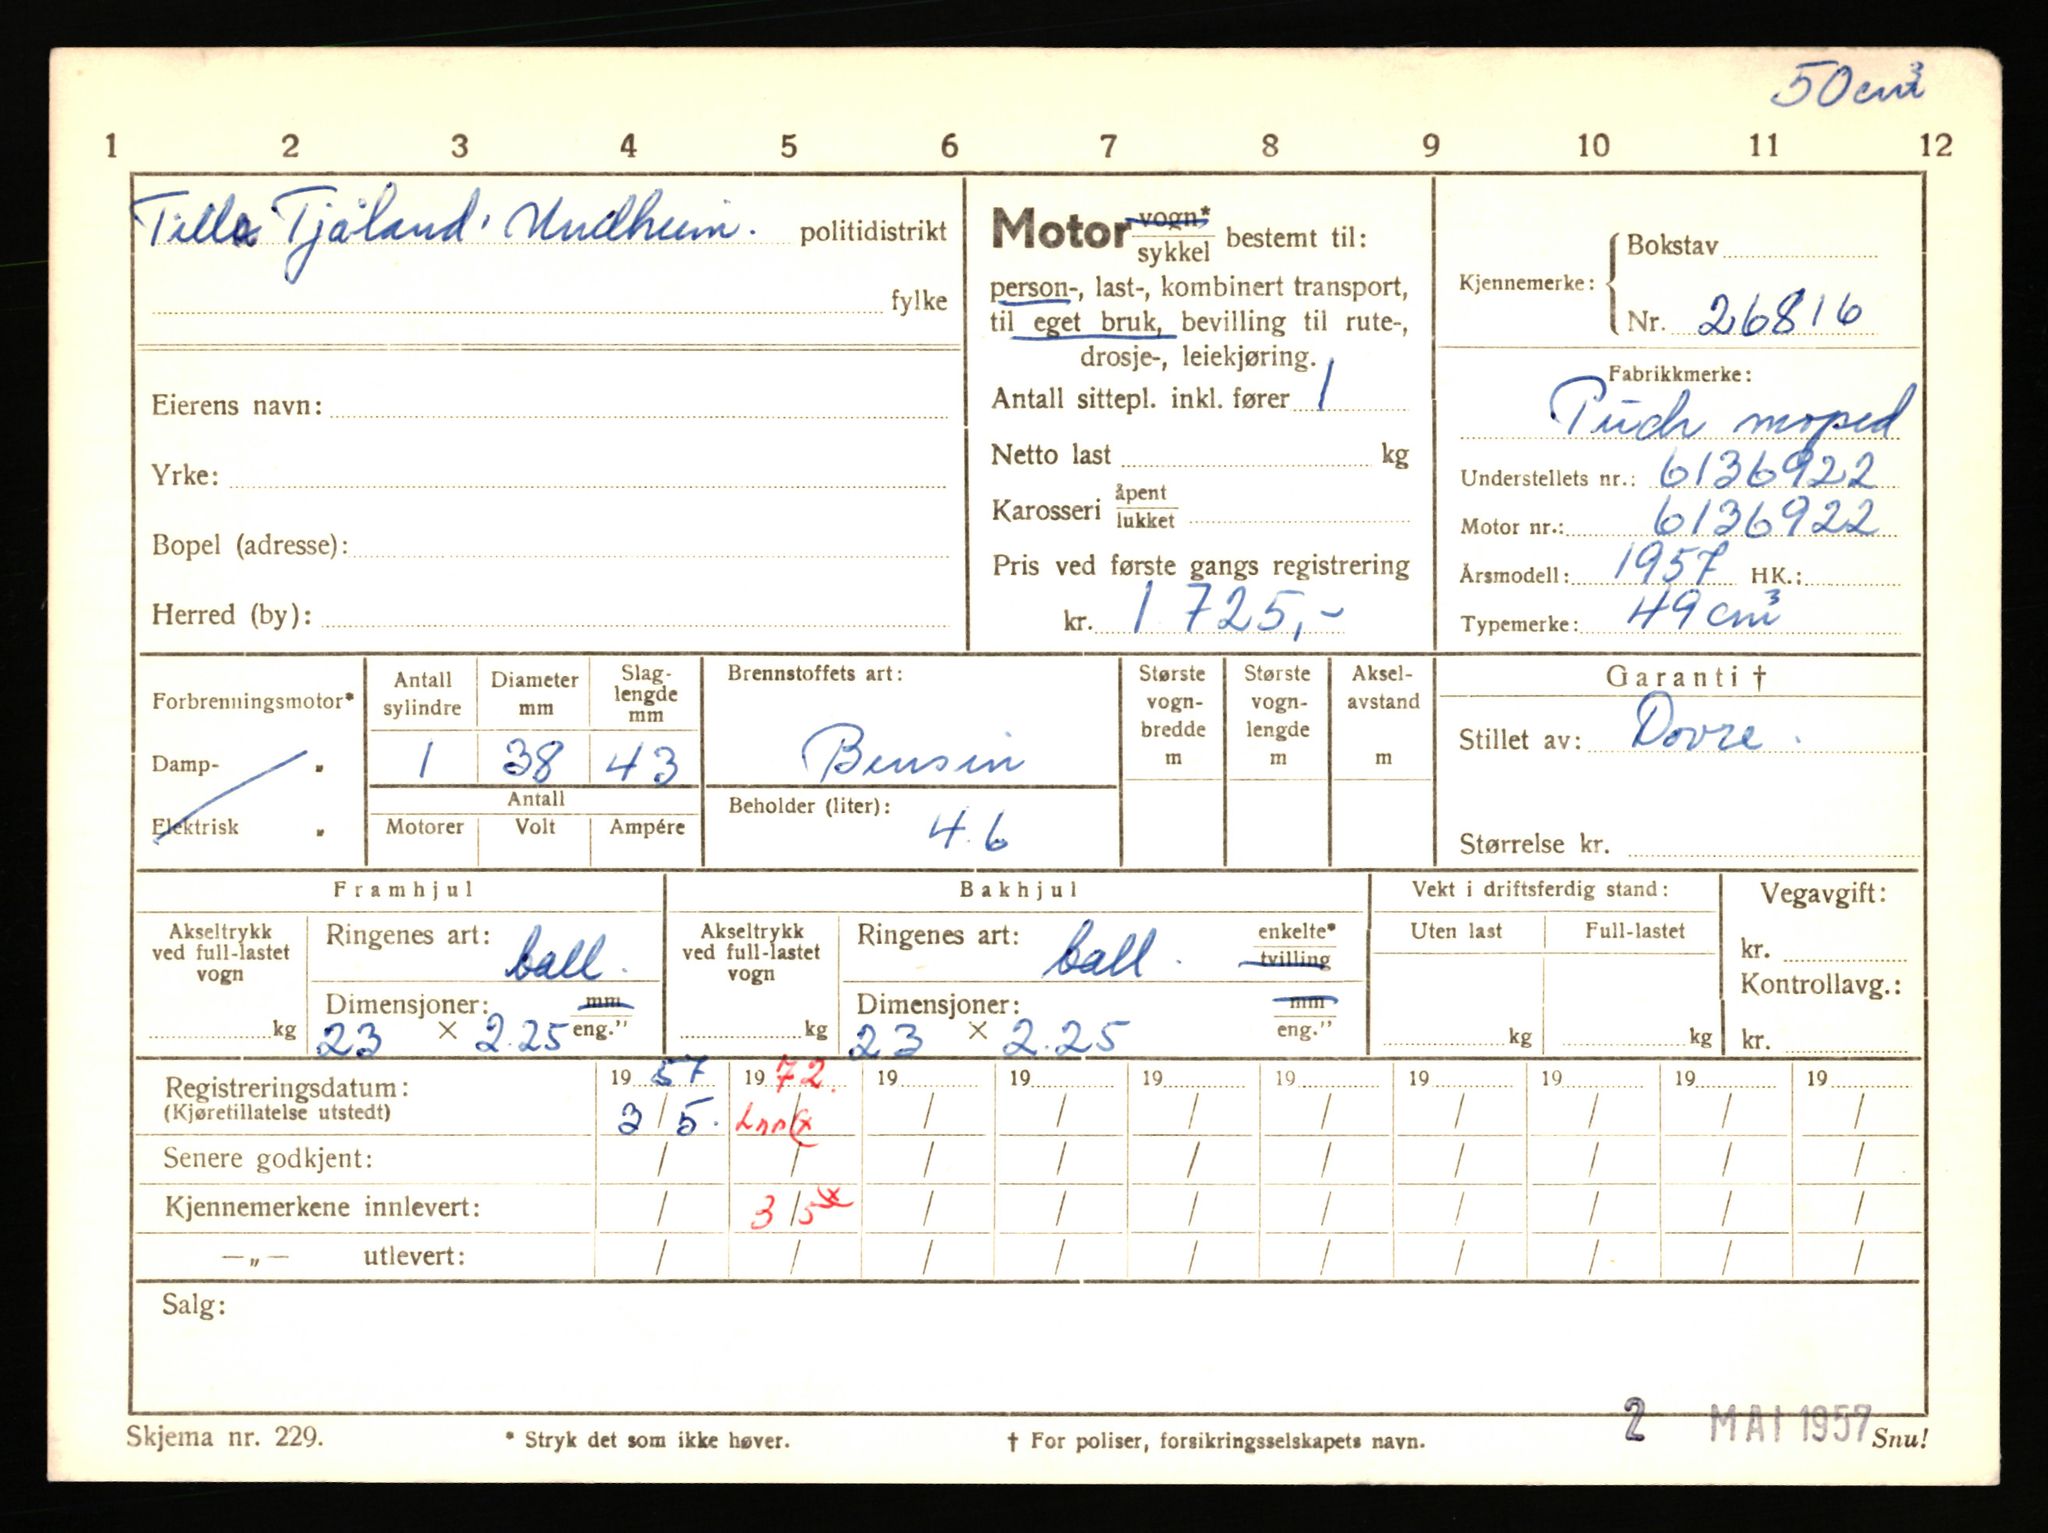 50 cm³
1 2 3 4 5 6 7 8 9 10 11 12
Tilla Tjåland, Undheim. politidistrikt
fylke
Eierens navn:
Yrke:
Bopel (adresse):
Herred (by):
Motor vogn*
sykkel bestemt til:
person-, last-, kombinert transport,
til eget bruk, bevilling til rute-,
drosje-, leiekjøring.
Antall sittepl. inkl. fører 1
Netto last kg
Karosseri åpent
lukket
Pris ved første gangs registrering
kr. 1 725,-
Kjennemerke: Bokstav
Nr. 26816
Fabrikkmerke:
Puch moped
Understellets nr.: 6136922
Motor nr.: 6136922
Årsmodell: 1957 HK.:
Typemerke: 49 cm³
Forbrenningsmotor*
Damp- „
Elektrisk „
Antall sylindre
1
Diameter mm
38
Slaglengde mm
43
Antall
Motorer Volt Ampére
Brennstoffets art:
Bensin
Beholder (liter):
4.6
Største vognbredde m
Største vognlengde m
Akselavstand m
Garanti †
Stillet av: Dovre.
Størrelse kr.
Framhjul
Akseltrykk
ved full-lastet
vogn
kg
Ringenes art:
ball.
Dimensjoner: mm
23 × 2.25 eng."
Bakhjul
Akseltrykk
ved full-lastet
vogn
kg
Ringenes art: enkelte*
ball. tvilling
Dimensjoner: mm
23 × 2.25 eng."
Vekt i driftsferdig stand:
Uten last Full-lastet
kg kg
Vegavgift:
kr.
Kontrollavg.:
kr.
Registreringsdatum: 19 57 19 72. 19 19 19 19 19 19 19 19
(Kjøretillatelse utstedt) 3 / 5. / / / / / / / / /
Senere godkjent: / / / / / / / / / /
Kjennemerkene innlevert: / 3 / 5 / / / / / / / /
—„— utlevert: / / / / / / / / / /
Salg:
2 MAI 1957
Skjema nr. 229. * Stryk det som ikke høver. † For poliser, forsikringsselskapets navn. Snu!